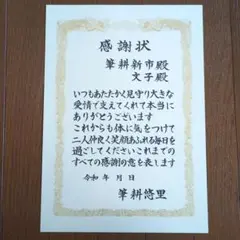 感謝状
筆耕新市殿
文子殿
いつもあたたかく見守り大きな
愛情で支えてくれて本当に
ありがとうございます
これからも体に気をつけて
二人仲良く笑顔あふれる毎日を
過ごしてくださいこれまでの
すべての感謝の意を表します
令和 年 月 日
筆耕悠里